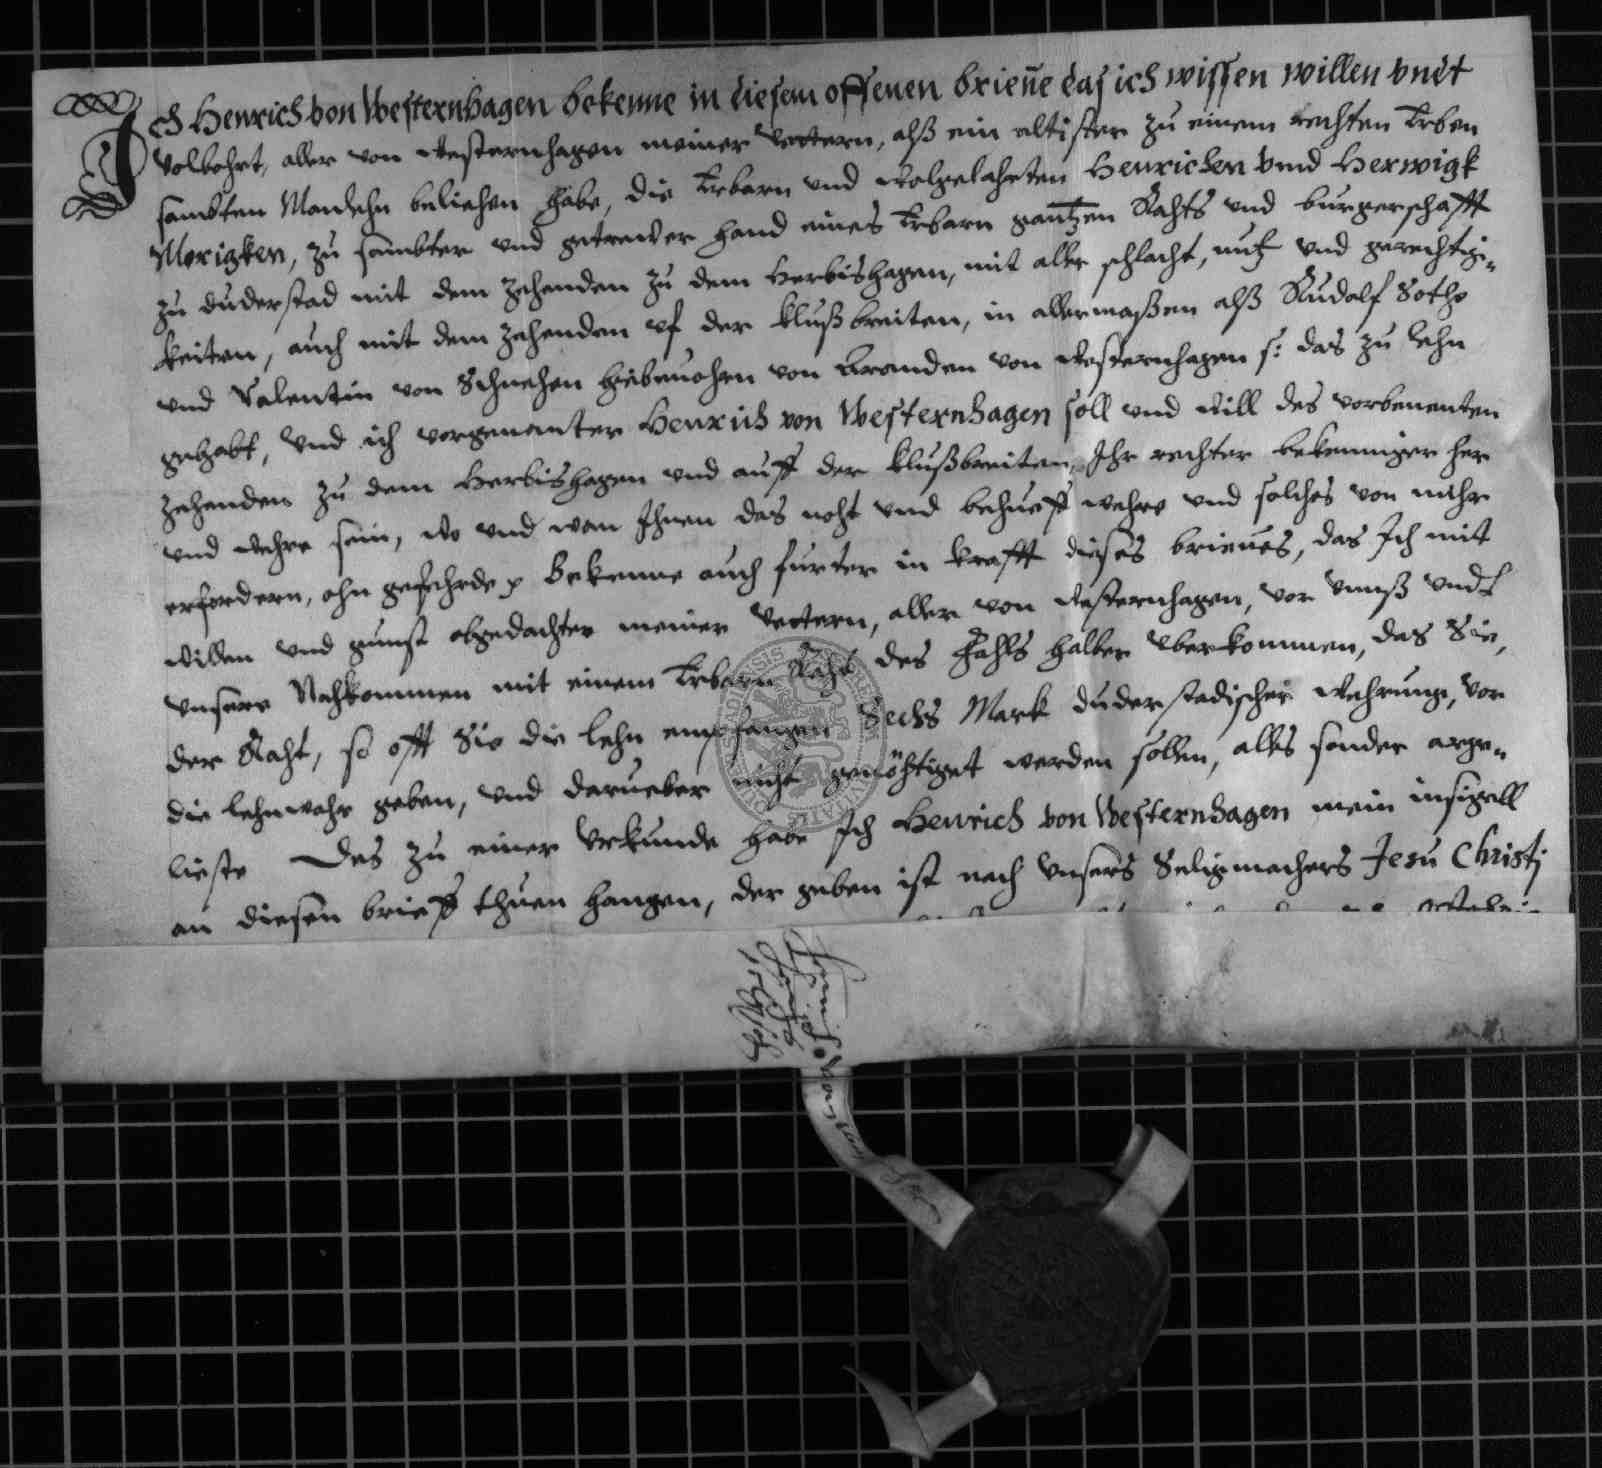 Ich Henrich von Westernhagen bekenne in diesem offenen brieue das ich wissen willen vndt
Volbohrt, aller von Westernhagen meiner Vettern, alß ein altister zu einem rechten Erben
sambten Manlehn beliehen habe, die Erbarn vnd Wolgelahrten Henrichen vnnd Herwigk
Morigken, zu sambter vnd getrewer hand eines Erbarn gantzen Rahts vnd burgerschafft
zu duderstad mit dem zehenden zu dem Herbishagen, mit aller schlacht, nutz vnd gerechtig-
keiten, auch mit dem zehenden vf der klußbreiten, in allermaßen alß Rudolf Bothe
vnd Valentin von Schnehen hiebeuohrn von Branden von Westernhagen s: das zu lehn
gehabt, Vnd ich vorgenanter Henrich von Westernhagen soll vnd will des vorbenenten
zehenden zu dem Herbishagen vnd auff der klußbreiten, Ihr rechter bekenniger her
vnd wehre sein, wo vnd wan Ihnen das noht vnd behueff wehre vnd solches von mihr
erfordern, ohn gefehrde, Bekenne auch furter in krafft dieses brieues, das Ich mit
willen vnd gunst obgedachter meiner Vettern, aller von Westernhagen, vor vnnß vndt
vnsere Nachkommen mit einem Erbarn Raht des fahls halber vberkommen, das Sie,
der Raht, so offt Sie die lehn empfangen Sechs Mark duderstadischer wehrung, vor
die lehnwahr geben, vnd darueber nicht genöhtiget werden sollen, alles sonder arge-
lieste Des zu einer Vrkunde habe Ich Henrich von Westernhagen mein insigell
an diesen brieff thuen hangen, der geben ist nach vnsers Seligmachers Jesu Christj
Henrich von